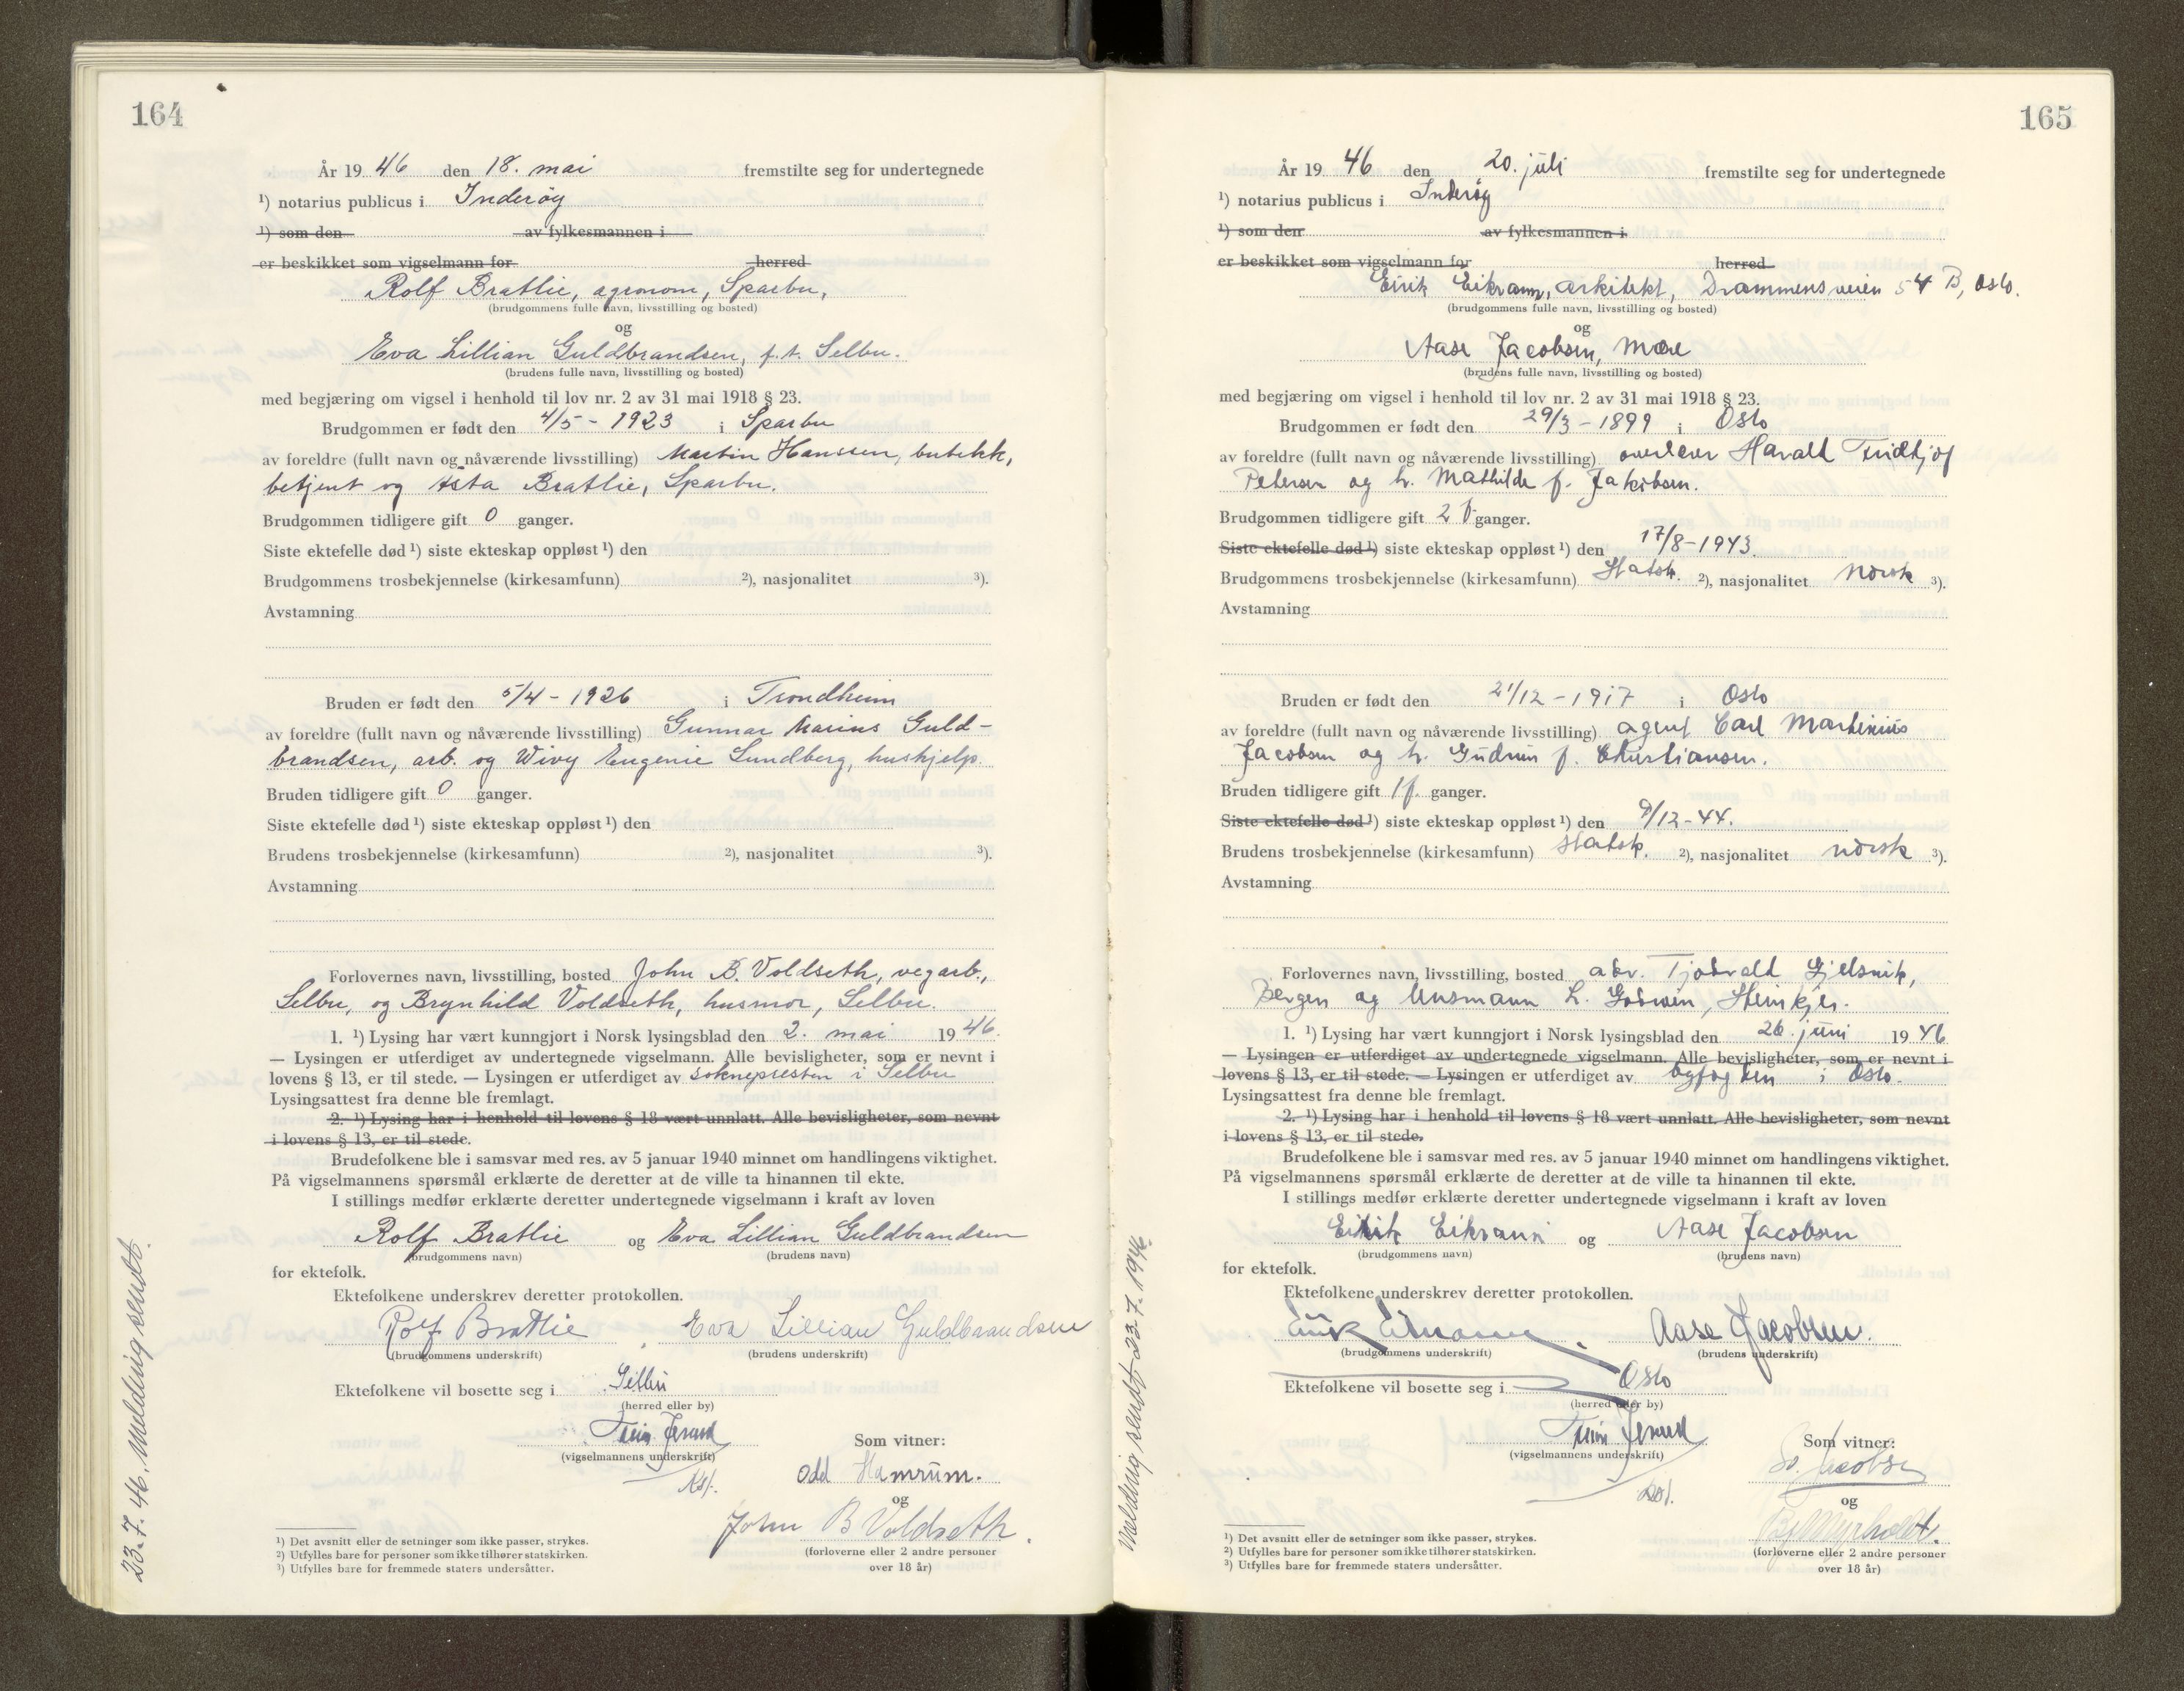 164
År 19 46 den 18. mai fremstilte seg for undertegnede
¹) notarius publicus i Inderøy
¹) som den av fylkesmannen i
er beskikket som vigselmann for herred
Rolf Bratlie, agronom, Sparbu,
(brudgommens fulle navn, livsstilling og bosted)
og
Eva Lillian Guldbrandsen, f.t. Selbu.
(brudens fulle navn, livsstilling og bosted)
med begjæring om vigsel i henhold til lov nr. 2 av 31 mai 1918 § 23.
Brudgommen er født den 4/5 - 1923 i Sparbu
av foreldre (fullt navn og nåværende livsstilling) Martin Hanssen, butikk,
betjent og Asta Bratlie, Sparbu.
Brudgommen tidligere gift 0 ganger.
Siste ektefelle død ¹) siste ekteskap oppløst ¹) den
Brudgommens trosbekjennelse (kirkesamfunn) ²), nasjonalitet ³).
Avstamning
Bruden er født den 5/4 - 1926 i Trondheim
av foreldre (fullt navn og nåværende livsstilling) Gunnar Marius Guld-
brandsen, arb. og Wivy Eugenie Lundberg, hushjelp.
Bruden tidligere gift 0 ganger.
Siste ektefelle død ¹) siste ekteskap oppløst ¹) den
Brudens trosbekjennelse (kirkesamfunn) ²), nasjonalitet ³).
Avstamning
Forlovernes navn, livsstilling, bosted John B. Voldseth, vegarb.,
Selbu, og Brynhild Voldseth, husmor, Selbu.
1. ¹) Lysing har vært kunngjort i Norsk lysingsblad den 2. mai 19 46.
— Lysingen er utferdiget av undertegnede vigselmann. Alle bevisligheter, som er nevnt i
lovens § 13, er til stede. — Lysingen er utferdiget av soknepresten i Selbu
Lysingsattest fra denne ble fremlagt.
2. ¹) Lysing har i henhold til lovens § 18 vært unnlatt. Alle bevisligheter, som nevnt
i lovens § 13, er til stede.
Brudefolkene ble i samsvar med res. av 5 januar 1940 minnet om handlingens viktighet.
På vigselmannens spørsmål erklærte de deretter at de ville ta hinannen til ekte.
I stillings medfør erklærte deretter undertegnede vigselmann i kraft av loven
Rolf Bratlie og Eva Lillian Guldbrandsen
(brudgommens navn) (brudens navn)
for ektefolk.
Ektefolkene underskrev deretter protokollen.
Rolf Bratlie Eva Lillian Guldbrandsen
(brudgommens underskrift) (brudens underskrift)
Ektefolkene vil bosette seg i Selbu
(herred eller by)
(vigselmannens underskrift)
Som vitner:
Odd Hamrum.
og
John B Voldseth.
(forloverne eller 2 andre personer
over 18 år)
¹) Det avsnitt eller de setninger som ikke passer, strykes.
²) Utfylles bare for personer som ikke tilhører statskirken.
³) Utfylles bare for fremmede staters undersåtter.
23.7.46. Melding sendt.
165
År 19 46 den 20. juli fremstilte seg for undertegnede
¹) notarius publicus i Inderøy
¹) som den av fylkesmannen i
er beskikket som vigselmann for herred
Eirik Eikrann, arkitekt, Drammensveien 54 B, Oslo.
(brudgommens fulle navn, livsstilling og bosted)
og
Aase Jacobsen, Mære
(brudens fulle navn, livsstilling og bosted)
med begjæring om vigsel i henhold til lov nr. 2 av 31 mai 1918 § 23.
Brudgommen er født den 29/3 - 1899 i Oslo
av foreldre (fullt navn og nåværende livsstilling) overlærer Harald Fridtjof
Petersen og h. Mathilde f. Jakobsen.
Brudgommen tidligere gift 2 ganger.
Siste ektefelle død ¹) siste ekteskap oppløst ¹) den 17/8 - 1943.
Brudgommens trosbekjennelse (kirkesamfunn) Statsk. ²), nasjonalitet norsk ³).
Avstamning
Bruden er født den 21/12 - 1917 i Oslo
av foreldre (fullt navn og nåværende livsstilling) agent Carl Martinius
Jacobsen og h. Gudrun f. Christiansen.
Bruden tidligere gift 1 ganger.
Siste ektefelle død ¹) siste ekteskap oppløst ¹) den 9/12 - 44.
Brudens trosbekjennelse (kirkesamfunn) Statsk. ²), nasjonalitet norsk ³).
Avstamning
Forlovernes navn, livsstilling, bosted adv.
Bergen og Steinkjer.
1. ¹) Lysing har vært kunngjort i Norsk lysingsblad den 26 juni 19 46
— Lysingen er utferdiget av undertegnede vigselmann. Alle bevisligheter, som er nevnt i
lovens § 13, er til stede. — Lysingen er utferdiget av byfogden i Oslo.
Lysingsattest fra denne ble fremlagt.
2. ¹) Lysing har i henhold til lovens § 18 vært unnlatt. Alle bevisligheter, som nevnt
i lovens § 13, er til stede.
Brudefolkene ble i samsvar med res. av 5 januar 1940 minnet om handlingens viktighet.
På vigselmannens spørsmål erklærte de deretter at de ville ta hinannen til ekte.
I stillings medfør erklærte deretter undertegnede vigselmann i kraft av loven
Eirik Eikrann og Aase Jacobsen
(brudgommens navn) (brudens navn)
for ektefolk.
Ektefolkene underskrev deretter protokollen.
Aase Jacobsen.
(brudgommens underskrift) (brudens underskrift)
Ektefolkene vil bosette seg i Oslo
(herred eller by)
(vigselmannens underskrift)
Som vitner:
og
(forloverne eller 2 andre personer
over 18 år)
¹) Det avsnitt eller de setninger som ikke passer, strykes.
²) Utfylles bare for personer som ikke tilhører statskirken.
³) Utfylles bare for fremmede staters undersåtter.
Melding sendt 23.7.1946.